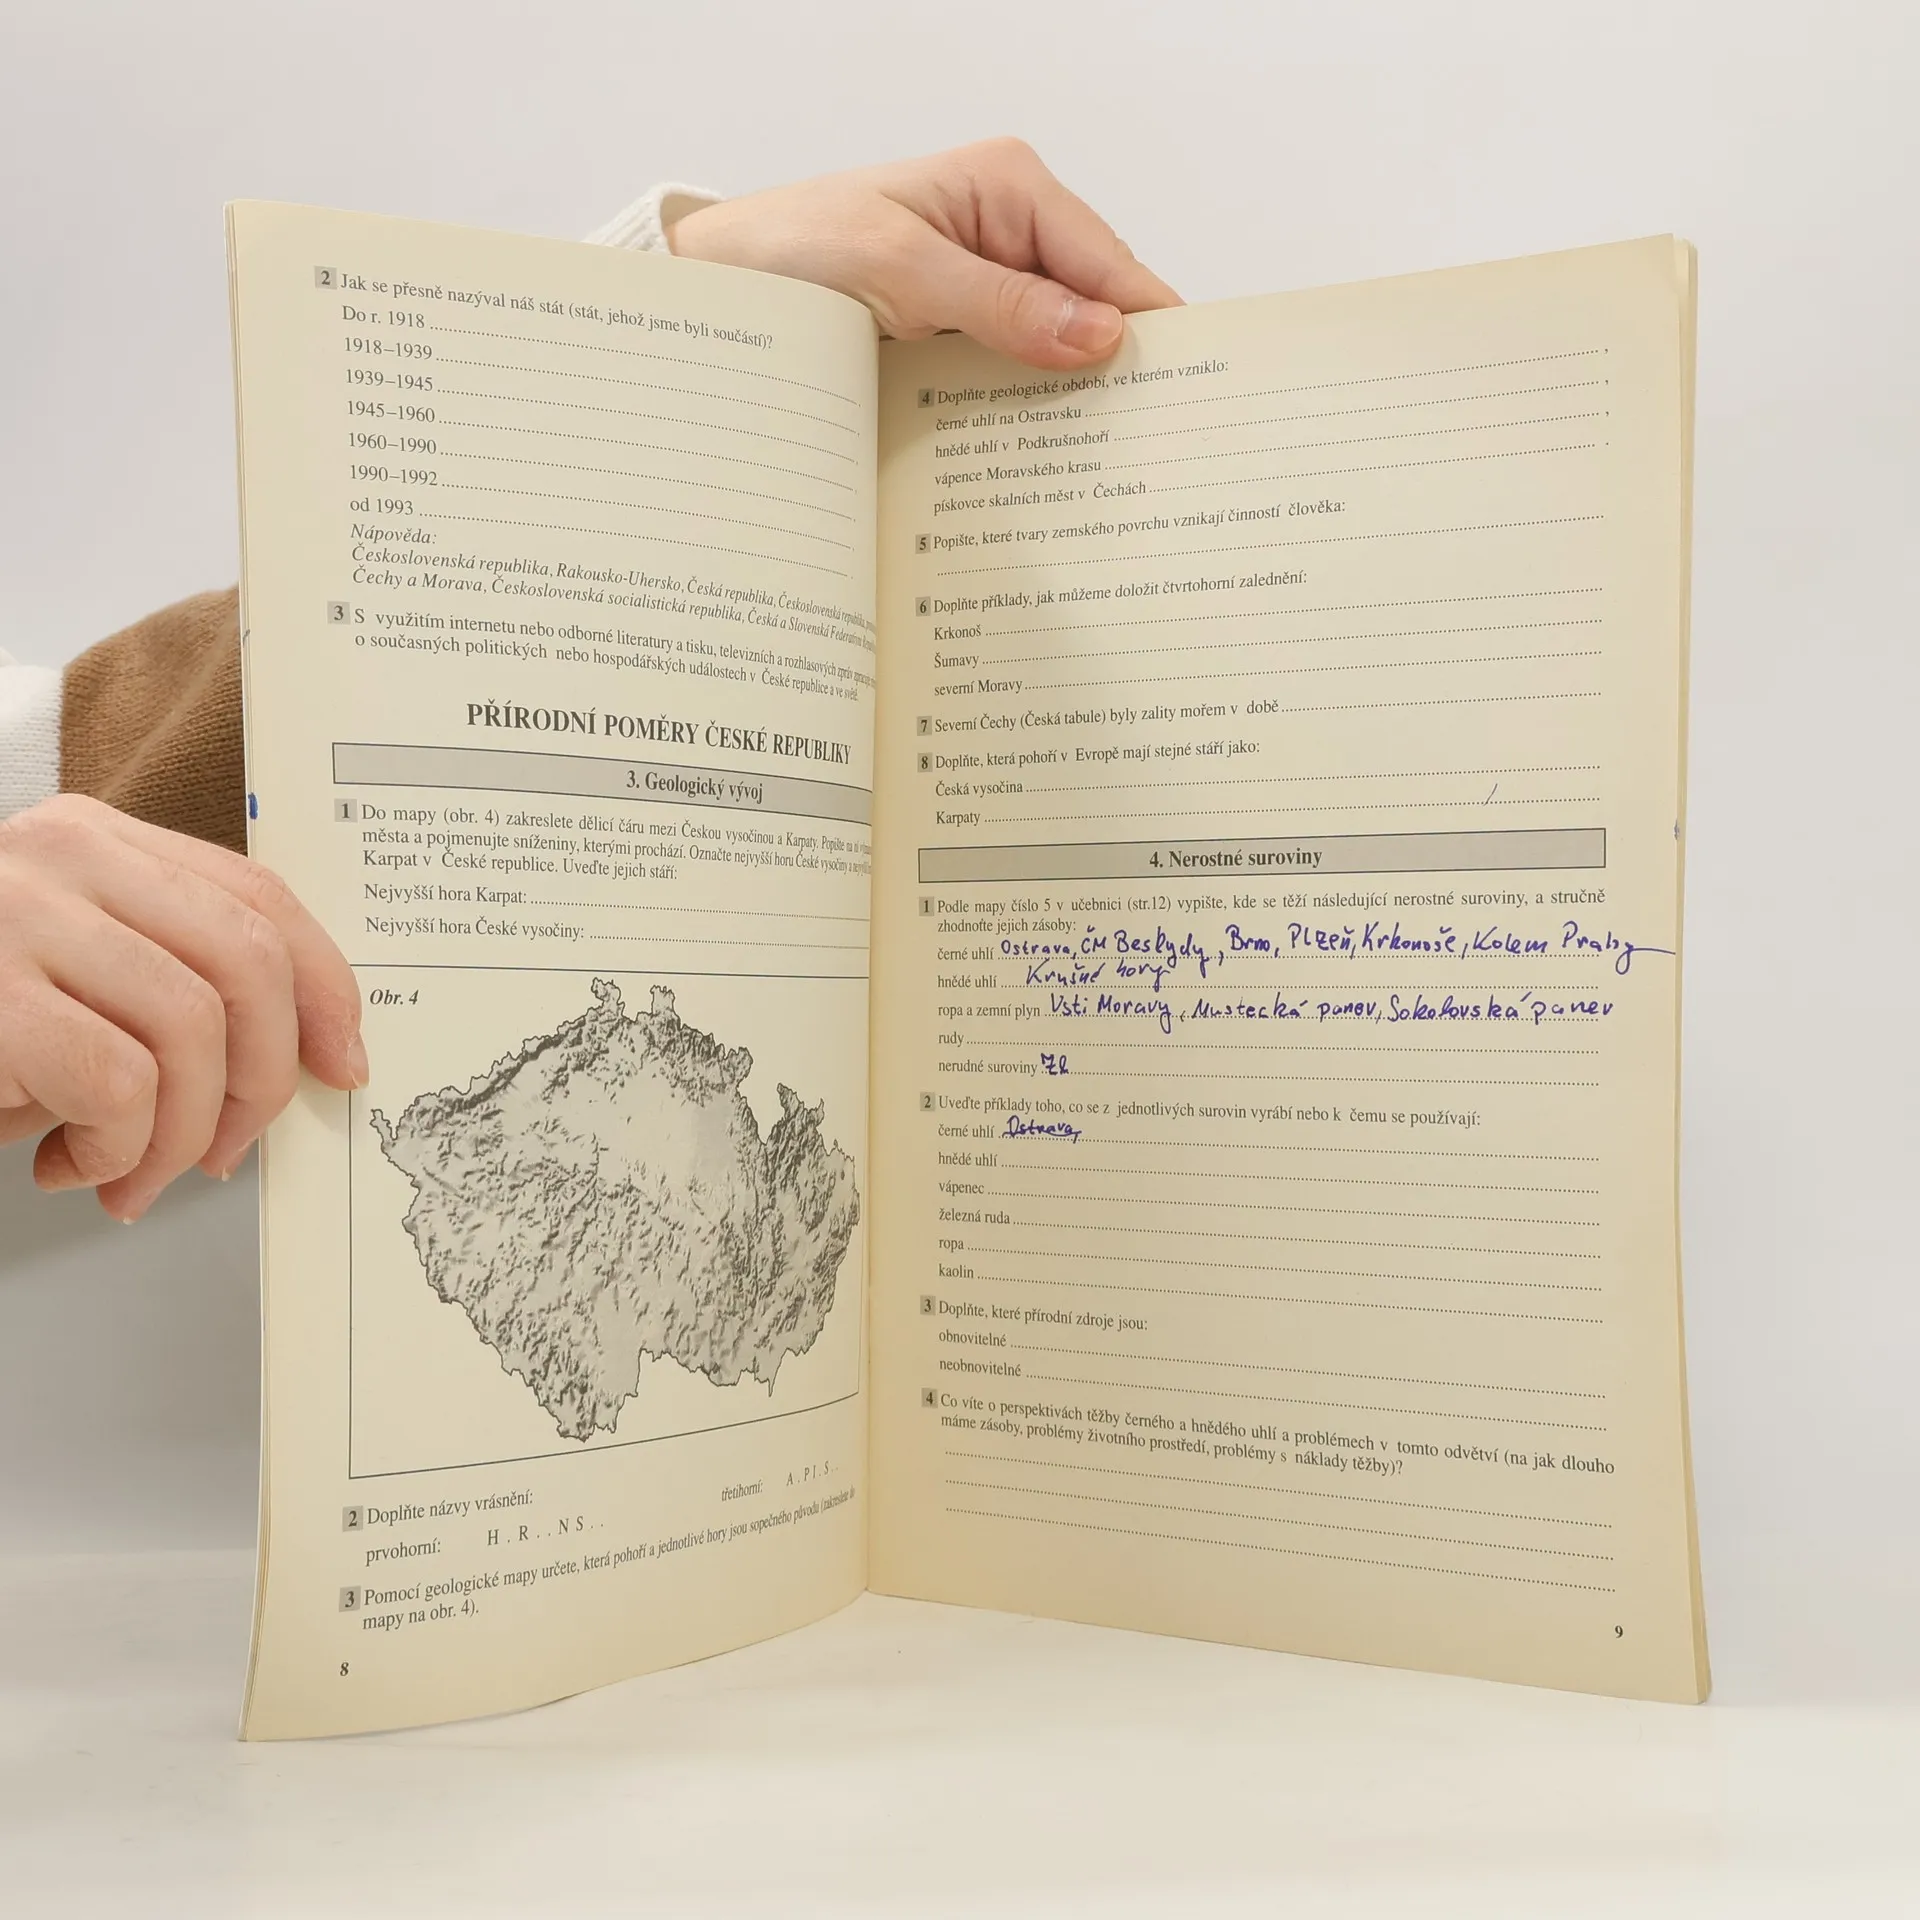 2 Jak se přesně nazýval náš stát (stát, jehož jsme byli součástí)?
Do r. 1918
1918–1939
1939–1945
1945–1960
1960–1990
1990–1992
od 1993
Nápověda:
Československá republika, Rakousko-Uhersko, Česká republika, Československá republika,
Čechy a Morava, Československá socialistická republika, Česká a Slovenská Federativní
3 S využitím internetu nebo odborné literatury a tisku, televizních a rozhlasových zpráv
o současných politických nebo hospodářských událostech v České republice a ve světě.
PŘÍRODNÍ POMĚRY ČESKÉ REPUBLIKY
3. Geologický vývoj
1 Do mapy (obr. 4) zakreslete dělicí čáru mezi Českou vysočinou a Karpaty. Popište na ní
města a pojmenujte sníženiny, kterými prochází. Označte nejvyšší horu České vysočiny a
Karpat v České republice. Uveďte jejich stáří:
Nejvyšší hora Karpat:
Nejvyšší hora České vysočiny:
Obr. 4
2 Doplňte názvy vrásnění:
prvohorní: H . R . . N S . . třetihorní: A . P I . S . .
3 Pomocí geologické mapy určete, která pohoří a jednotlivé hory jsou sopečného původu (zakreslete do
mapy na obr. 4).
8
4 Doplňte geologické období, ve kterém vzniklo:
černé uhlí na Ostravsku ,
hnědé uhlí v Podkrušnohoří ,
vápence Moravského krasu ,
pískovce skalních měst v Čechách .
5 Popište, které tvary zemského povrchu vznikají činností člověka:
6 Doplňte příklady, jak můžeme doložit čtvrtohorní zalednění:
Krkonoš
Šumavy
severní Moravy
7 Severní Čechy (Česká tabule) byly zality mořem v době
8 Doplňte, která pohoří v Evropě mají stejné stáří jako:
Česká vysočina
Karpaty
4. Nerostné suroviny
1 Podle mapy číslo 5 v učebnici (str.12) vypište, kde se těží následující nerostné suroviny, a stručně
zhodnoťte jejich zásoby:
černé uhlí Ostrava, ČM Beskydy, Brno, Plzeň, Krkonoše, Kolem Prahy
hnědé uhlí Krušné hory
ropa a zemní plyn Ústi Moravy, Mustecká panev, Sokolovská panev
rudy
nerudné suroviny Zl
2 Uveďte příklady toho, co se z jednotlivých surovin vyrábí nebo k čemu se používají:
černé uhlí Ostrava,
hnědé uhlí
vápenec
železná ruda
ropa
kaolin
3 Doplňte, které přírodní zdroje jsou:
obnovitelné
neobnovitelné
4 Co víte o perspektivách těžby černého a hnědého uhlí a problémech v tomto odvětví (na jak dlouho
máme zásoby, problémy životního prostředí, problémy s náklady těžby)?
9